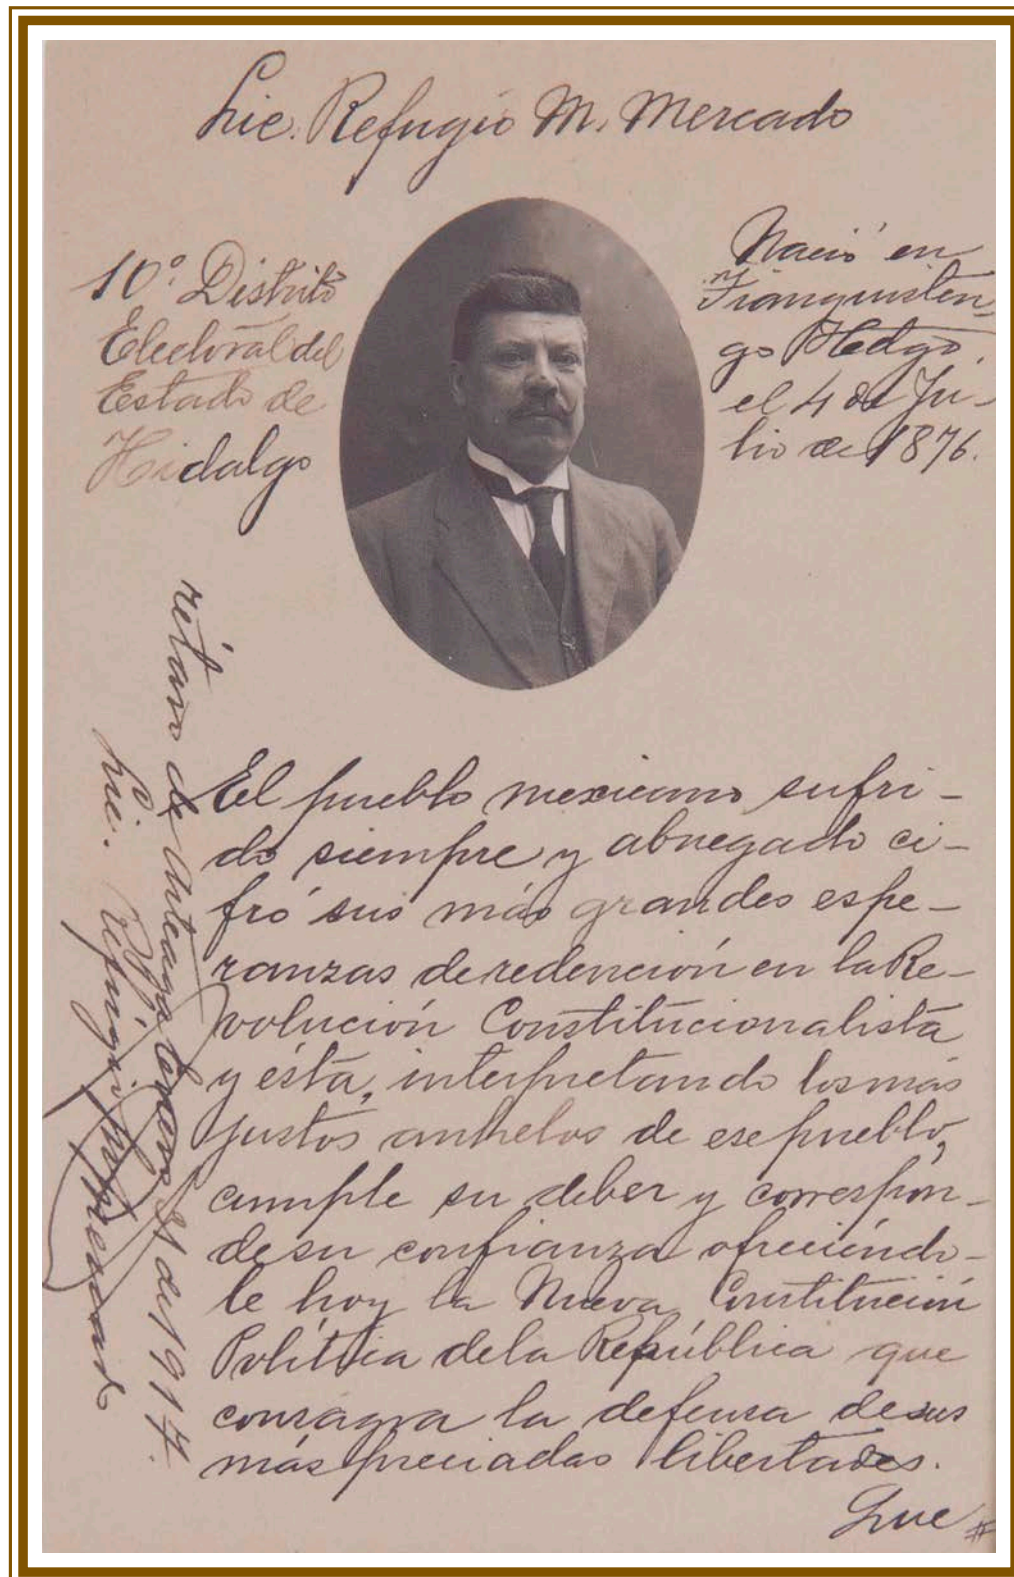 Lic. Refugio M. Mercado
10º Distrito
Electoral del
Estado de
Hidalgo
Nació en
Tianguisten-
go Hedgo.
el 4 de Ju-
lio de 1876.
El pueblo mexicano sufri-
do siempre y abnegado ci-
fró sus más grandes espe-
ranzas de redención en la Re-
volución Constitucionalista
y ésta, interpretando los más
justos anhelos de ese pueblo,
cumple su deber y correspon-
de su confianza ofreciéndo-
le hoy la Nueva Constitución
Política de la República que
consagra la defensa de sus
más preciadas libertades.
Que #
rétaro de Arteaga Enero 31 de 1917.
Lic. Refugio M. Mercado